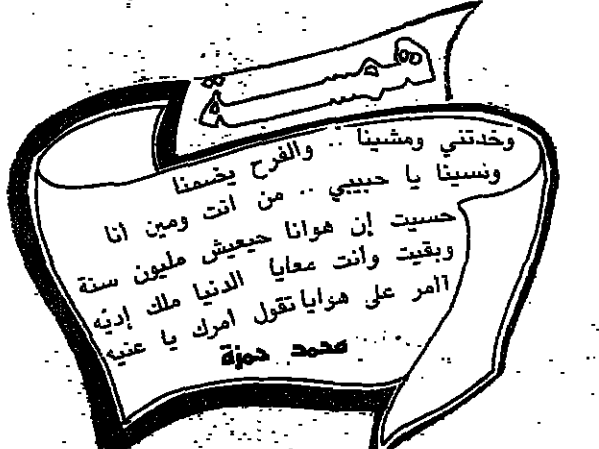 همسة
وخدتني ومشينا .. والفرح يضمنا
ونسينا يا حبيبي .. من انت ومين أنا
حسيت إن هوانا حيعيش مليون سنة
وبقيت وأنت معايا الدنيا ملك إديه
أأمر على هوايا تقول أمرك يا عنيه
محمد حمزة